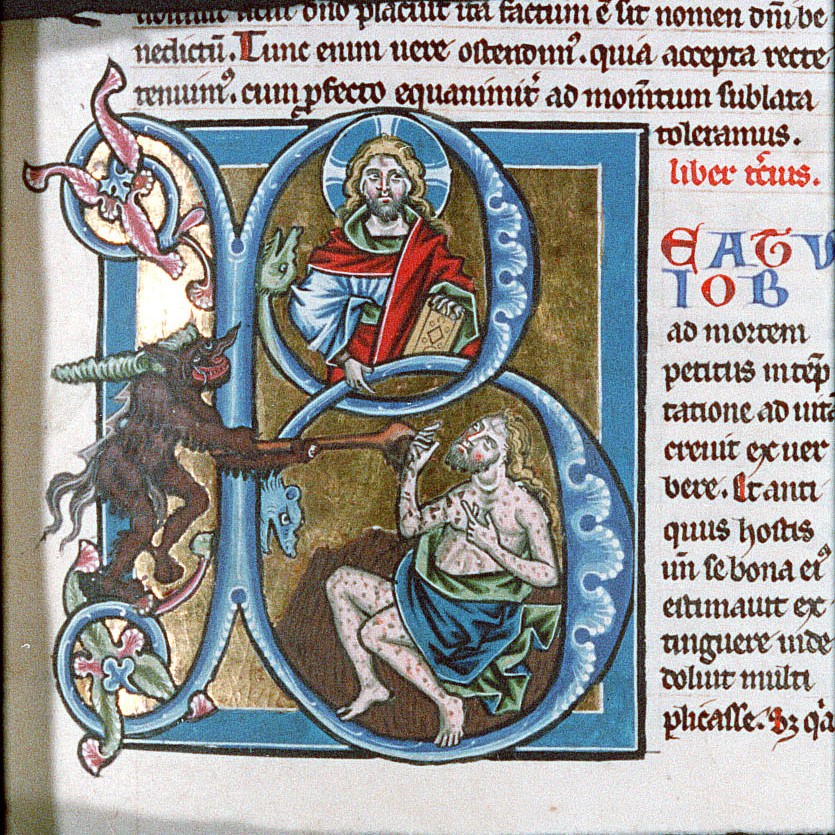 nomini sicut dño placuit ita factum ē sit nomen dñi be
nedictū. Tunc enim uere ostendim᷒. quia accepta recte
tenuim᷒. cum ꝑfecto equanimit᷑ ad mom̄tum sublata
toleramus.
liber tc̄ius.
B
EATU
IOB
ad mortem
petitus in tēp
tatione ad uita
creuit ex uer
bere. Et anti
quus hostis
un̄ se bona ei᷒
estimauit ex
tinguere inde
doluit multi
plicasse. Sꝫ qa